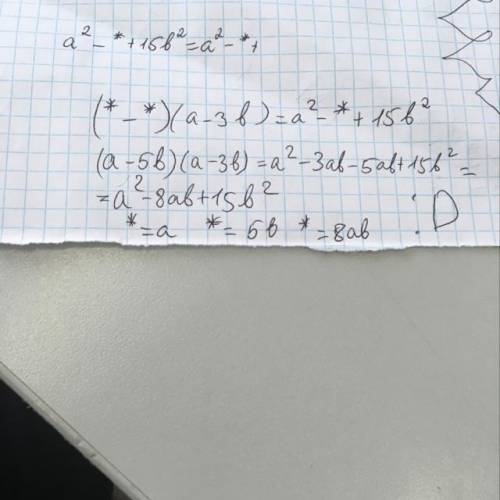 a² - * + 15b² = a² - * +
(* - *)(a - 3b) = a² - * + 15b²
(a - 5b)(a - 3b) = a² - 3ab - 5ab + 15b² =
= a² - 8ab + 15b²
* = a * = 5b * = 8ab :D